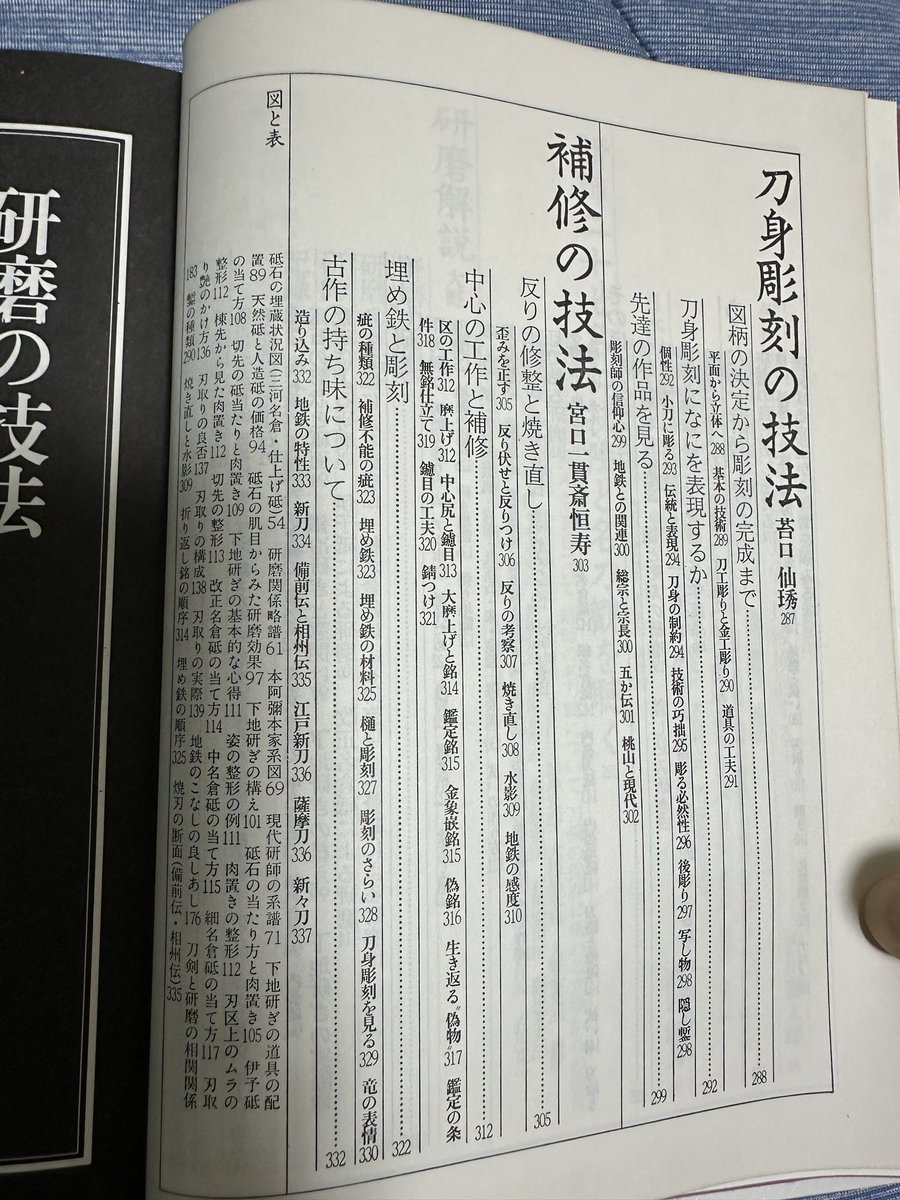 刀身彫刻の技法 苔口 仙琇 287
図柄の決定から彫刻の完成まで……288
平面から立体へ288 基本の技術289 刀工彫りと金工彫り290 道具の工夫291
刀身彫刻になにを表現するか……292
個性292 小刀に彫る293 伝統と表現294 刀身の制約294 技術の巧拙295 彫る必然性296 後彫り297 写し物298 隠し鏨298
先達の作品を見る……299
彫刻師の信仰心299 地鉄との関連300 総宗と宗長300 五か伝301 桃山と現代302
補修の技法 宮口一貫斎恒寿 303
反りの修整と焼き直し……305
歪みを正す305 反り伏せと反りつけ306 反りの考察307 焼き直し308 水影309 地鉄の感度310
中心の工作と補修……312
区の工作312 磨上げ312 中心尻と鑢目313 大磨上げと銘314 鑑定銘315 金象嵌銘315 偽銘316 生き返る〝偽物〟317 鑑定の条
件318 無銘仕立て319 鑢目の工夫320 錆つけ321
埋め鉄と彫刻……322
疵の種類322 補修不能の疵323 埋め鉄323 埋め鉄の材料325 樋と彫刻327 彫刻のさらい328 刀身彫刻を見る329 竜の表情330
古作の持ち味について……332
造り込み332 地鉄の特性333 新刀334 備前伝と相州伝335 江戸新刀336 薩摩刀336 新々刀337
図と表
砥石の埋蔵状況図(三河名倉・仕上げ砥)54 研磨関係略譜61 本阿彌本家系図69 現代研師の系譜71 下地研ぎの道具の配
置89 天然砥と人造砥の価格94 砥石の肌目からみた研磨効果97 下地研ぎの構え101 砥石の当たり方と肉置き105 伊予砥
の当て方108 切先の砥当たりと肉置き109 下地研ぎの基本的な心得111 姿の整形の例111 肉置きの整形112 刃区上のムラの
整形112 棟先から見た肉置き112 切先の整形113 改正名倉砥の当て方114 中名倉砥の当て方115 細名倉砥の当て方117 刃取
り艶のかけ方136 刃取りの良否137 刃取りの構成138 刃取りの実際139 地鉄のこなしの良しあし176 刀剣と研磨の相関関係
183 鏨の種類290 焼き直しと水影309 折り返し銘の順序314 埋め鉄の順序325 焼刃の断面(備前伝・相州伝)335
研磨の技法